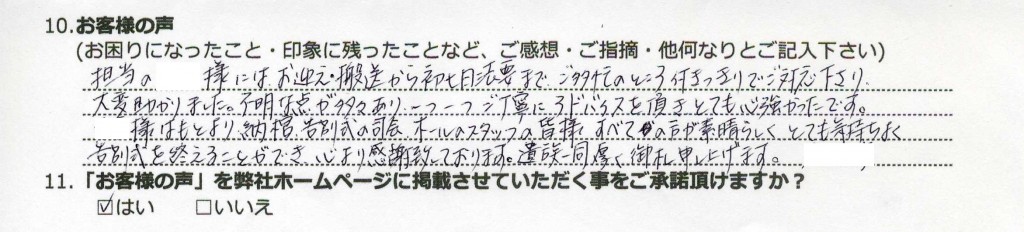 10.お客様の声
(お困りになったこと・印象に残ったことなど、ご感想・ご指摘・他何なりとご記入下さい)
担当の 様にはお迎え・搬送から初七日法要までご多忙のところ付きっきりでご対応下さり、
大変助かりました。不明な点が多々あり、一つ一つご丁寧にアドバイスを頂きとても心強かったです。
様はもとより、納棺、告別式の司会、ホールのスタッフの皆様、すべての方が素晴らしく、とても気持ちよく
告別式を終えることができ、心より感謝致しております。遺族一同厚く御礼申し上げます。
11.「お客様の声」を弊社ホームページに掲載させていただく事をご承諾頂けますか？
☑はい □いいえ